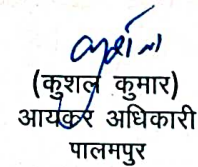 (कुशल कुमार)
आयकर अधिकारी
पालमपुर